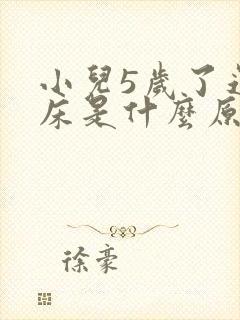 小兒5歲了
床是什麼原
徐豪